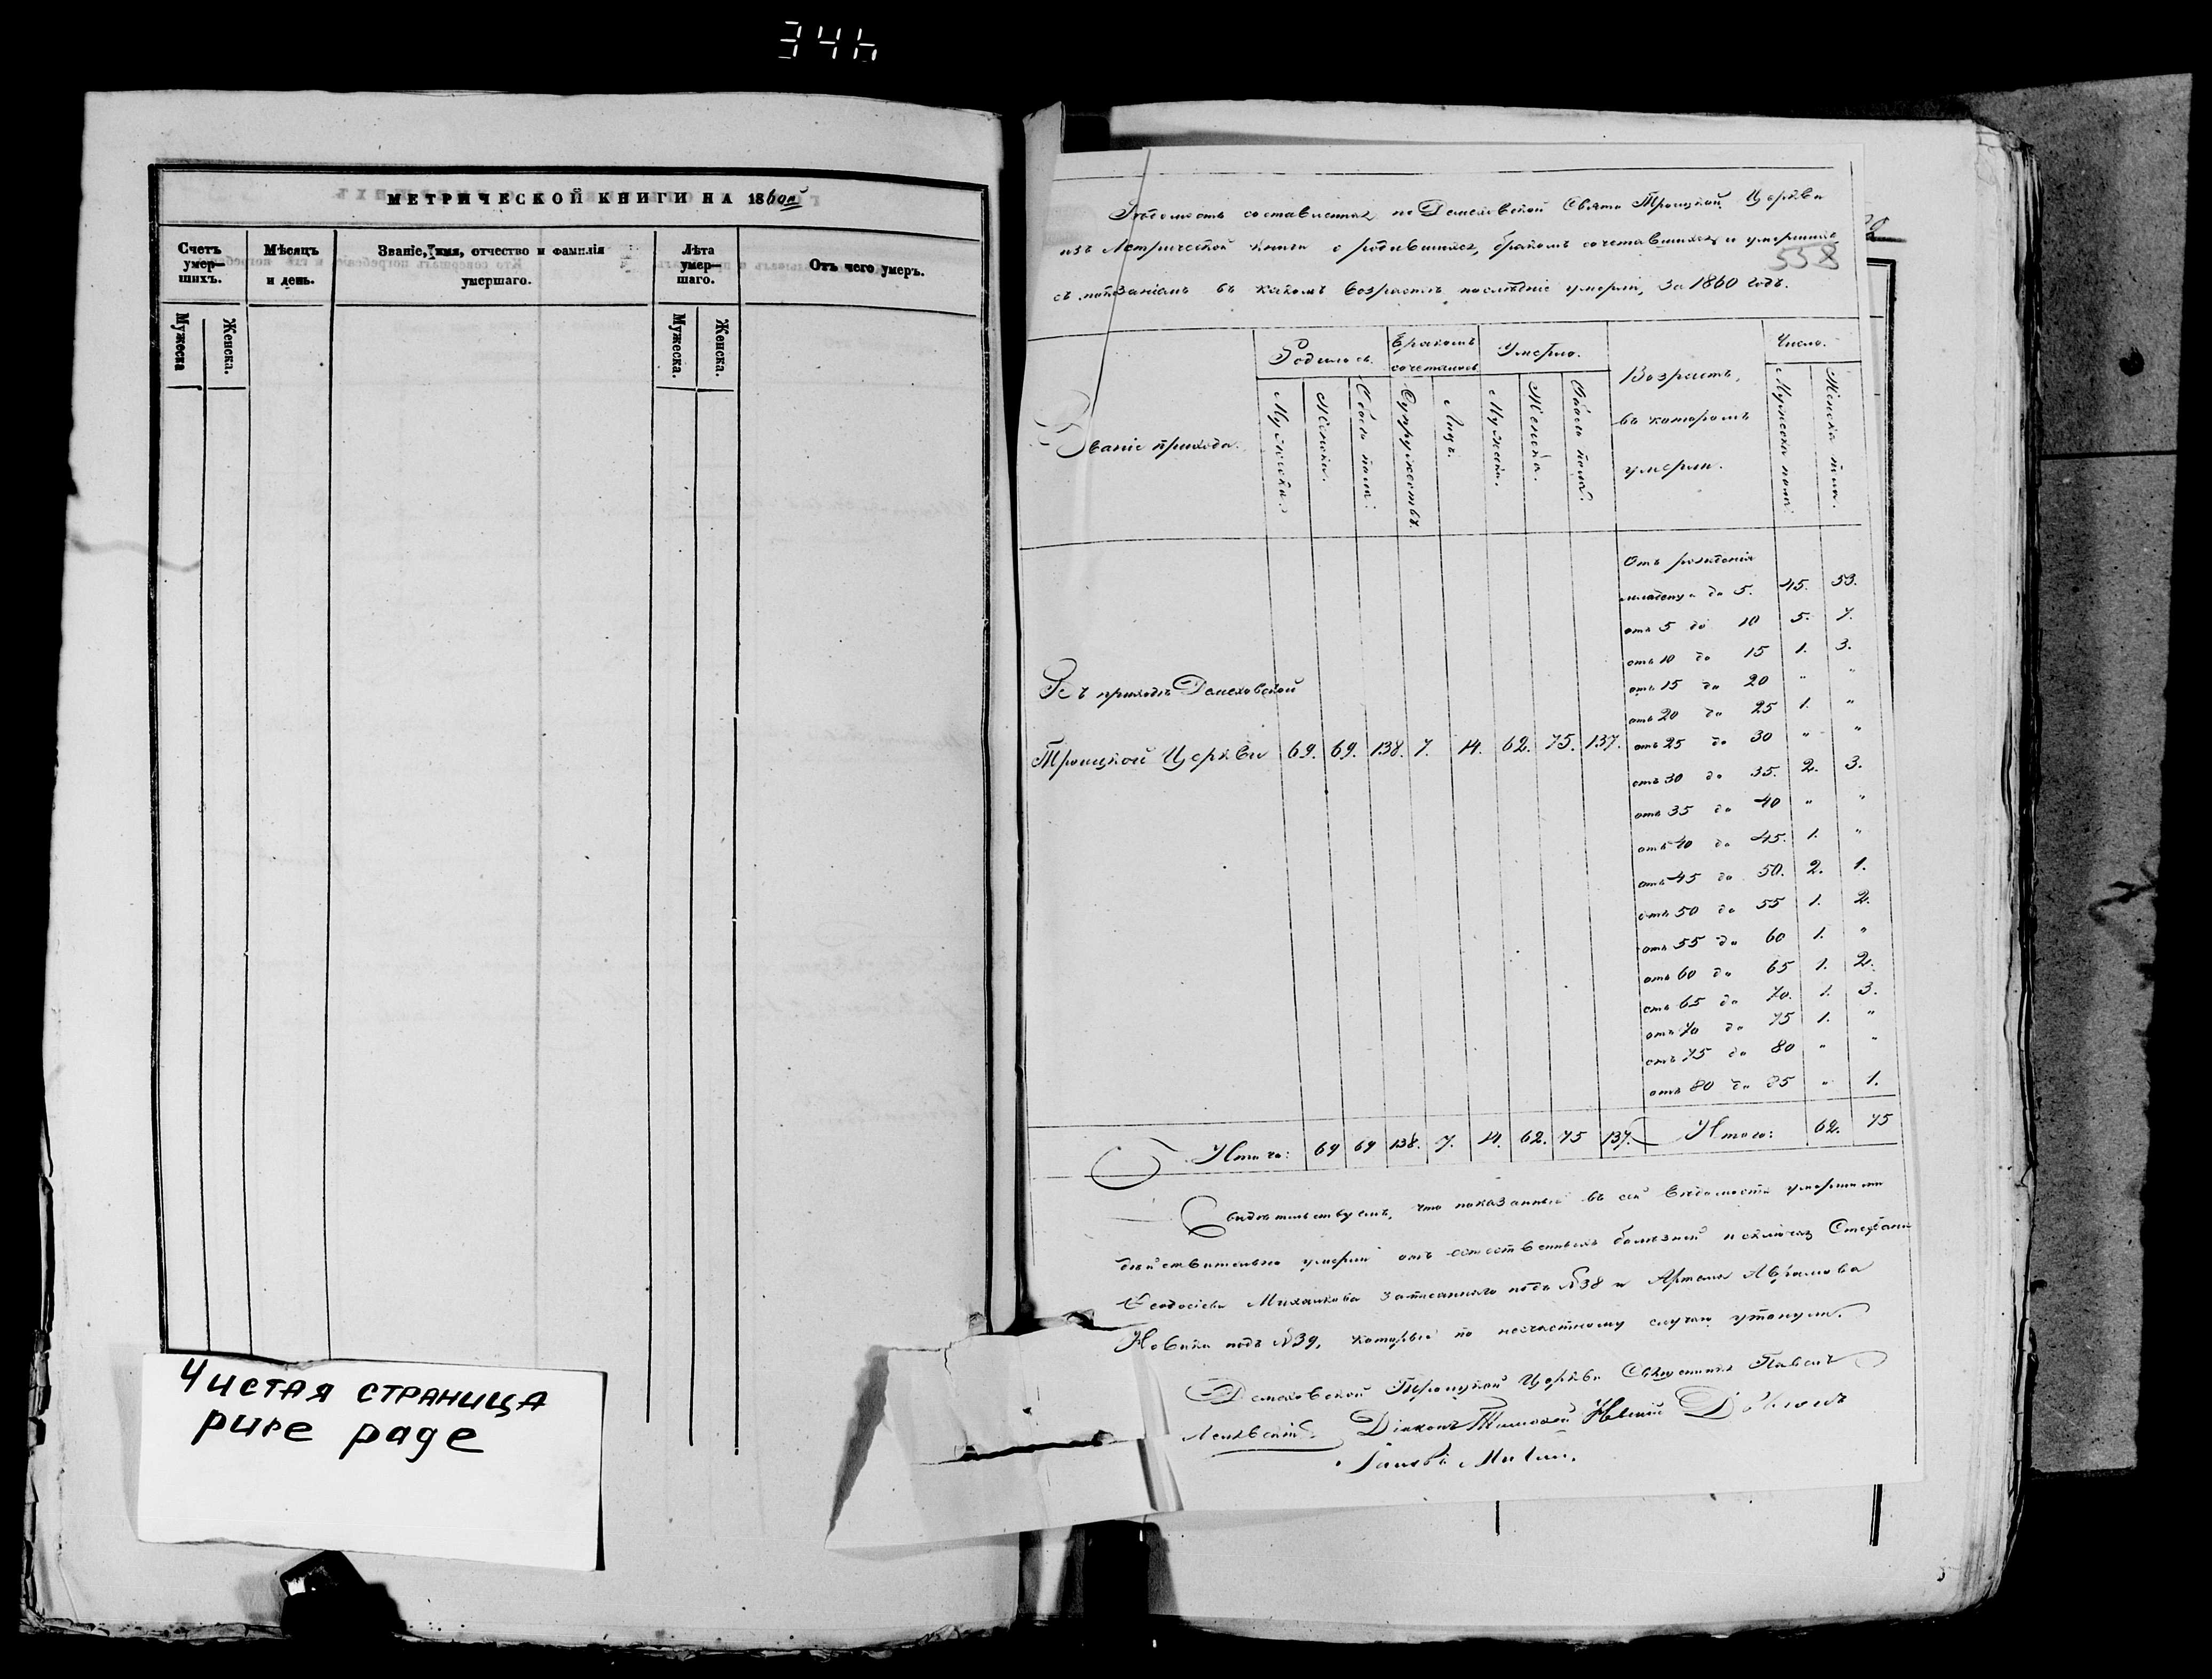 346
МЕТРИЧЕСКОЙ КНИГИ НА 1860й
Счетъ умер— шихъ.
Мѣсяцъ и день.
Званіе, имя, отчество и фамилія умершаго.
Лѣта умер— шаго.
Отъ чего умеръ.
Мужеска
Женска.
Мужеска.
Женска.
Чистая страница
pure page
Вѣдомость составленная по Демеховской Свято Троицкой Церкви
изъ Метрической книги о родившихся, бракомъ сочетавшихся и умершихъ
558
съ показаніемъ въ какомъ возрастѣ послѣдніе умерли, за 1860 годъ.
Званіе прихода.
Родилось.
Бракомъ сочеталось
Умерло.
Возрастъ, въ которомъ умерли.
Число.
Мужеска.
Женска.
Обоего пола.
Супружествъ.
Лицъ.
Мужеска.
Женска.
Обоего пола.
Мужеска пола.
Женска пола.
Отъ рожденія
младенца до 5. 45. 53.
отъ 5 до 10 5. 7.
отъ 10 до 15 1. 3.
отъ 15 до 20 " "
отъ 20 до 25 1. "
отъ 25 до 30 " "
отъ 30 до 35. 2. 3.
отъ 35 до 40 " "
отъ 40 до 45. 1. "
отъ 45 до 50. 2. 1.
отъ 50 до 55 1. 2.
отъ 55 до 60 1. "
отъ 60 до 65 1. 2.
отъ 65 до 70. 1. 3.
отъ 70 до 75 1. "
отъ 75 до 80 " "
отъ 80 до 85 " 1.
Въ приходѣ Демеховской
Троицкой Церкви 69. 69. 138. 7. 14. 62. 75. 137.
Итого: 69 69 138. 7. 14. 62. 75 137. Итого: 62. 75
Свидѣтельствуемъ, что показанные въ сей вѣдомости умершими
дѣйствительно умерли отъ естественныхъ болѣзней исключая Стефана
Феодосіева Михалкова записаннаго подъ №38 и Артема Аврамова
Новика подъ №39, которые по несчастному случаю утонули.
Демеховской Троицкой Церкви Священникъ Павелъ
Діаконъ Тимофей